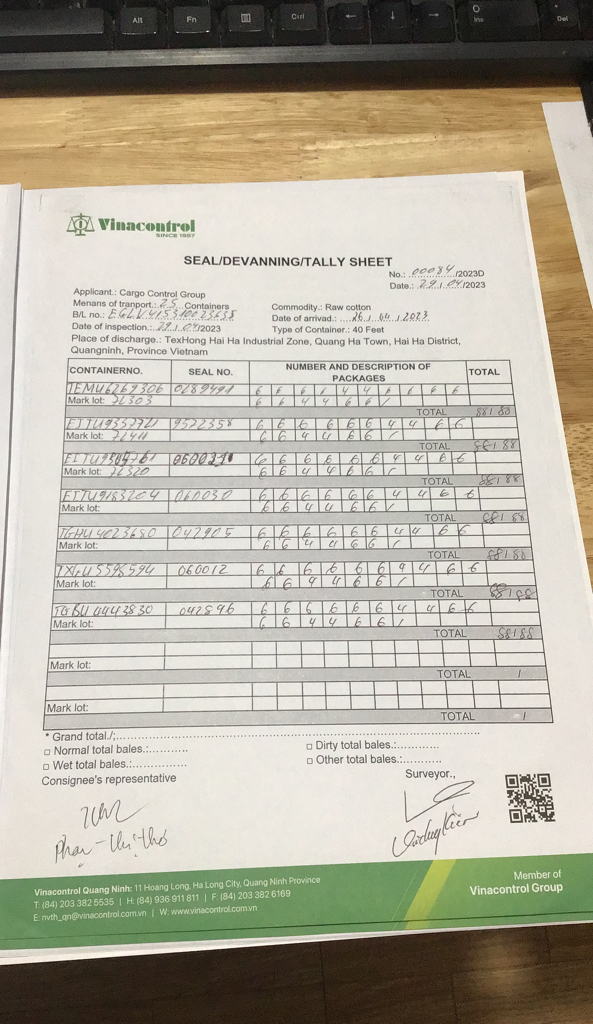 Alt
Fn
Ctrl
Ins
Del
Vinacontrol
SINCE 1957
SEAL/DEVANNING/TALLY SHEET
No.: 00084/2023D
Date.: 29/04/2023
Applicant.: Cargo Control Group
Menans of tranport.: 25 Containers
Commodity.: Raw cotton
B/L no.:
Date of arrivad.: 26/04/2023
Date of inspection.: 29/04/2023
Type of Container.: 40 Feet
Place of discharge.: TexHong Hai Ha Industrial Zone, Quang Ha Town, Hai Ha District,
Quangninh, Province Vietnam
CONTAINERNO. SEAL NO. NUMBER AND DESCRIPTION OF PACKAGES TOTAL
TEMU6269306
Mark lot: 7L303 6 6 4 4 6 6 /
TOTAL 88/88
6 6 6 6 6 6 4 4 6 6
Mark lot: 6 6 4 4 6 6 /
TOTAL 88/88
6 6 6 6 6 6 4 4 6 6
Mark lot: 7L320 6 6 4 4 6 6 /
TOTAL 88/88
EITU9183204 060030 6 6 6 6 6 6 4 4 6 6
Mark lot: 6 6 4 4 6 6 /
TOTAL 88/88
TGHU4023680 042905 6 6 6 6 6 6 4 4 6 6
Mark lot: 6 6 4 4 6 6 /
TOTAL 88/88
060012 6 6 6 6 6 6 4 4 6 6
Mark lot: 6 6 4 4 6 6 /
TOTAL 88/88
TGBU4443830 042896 6 6 6 6 6 6 4 4 6 6
Mark lot: 6 6 4 4 6 6 /
TOTAL 88/88
Mark lot:
TOTAL /
Mark lot:
TOTAL /
* Grand total./;
□ Normal total bales.:
□ Dirty total bales.:
□ Wet total bales.:
□ Other total bales.:
Consignee's representative
Surveyor.,
Vinacontrol Quang Ninh: 11 Hoang Long, Ha Long City, Quang Ninh Province
T: (84) 203 382 5535 | H: (84) 936 911 811 | F: (84) 203 382 6169
E: nvth_qn@vinacontrol.com.vn | W: www.vinacontrol.com.vn
Member of
Vinacontrol Group